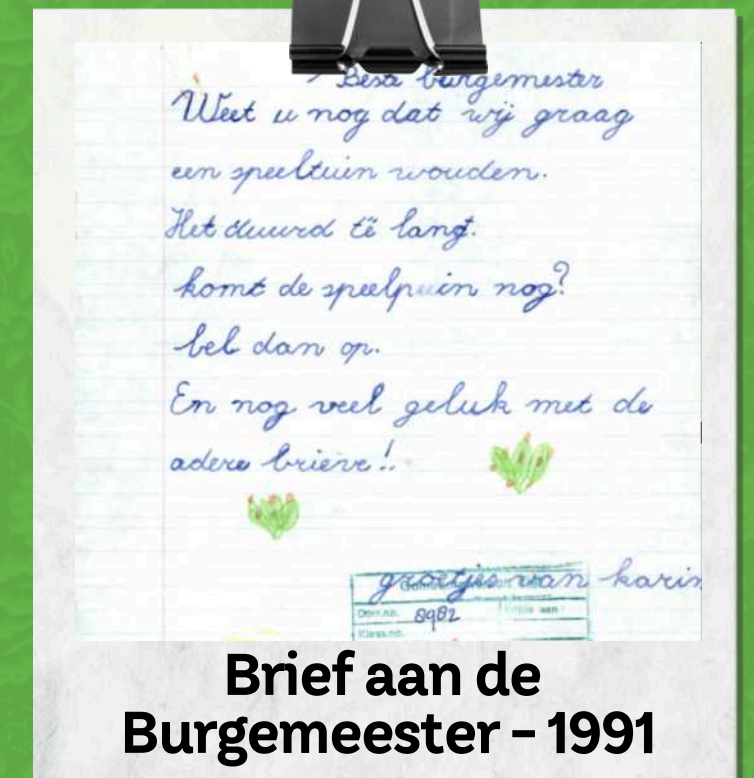 Beste burgemester
Weet u nog dat wij graag
een speeltuin wouden.
Het duurd të lang.
komt de speelpuin nog?
bel dan op.
En nog veel geluk met de
adere brieve!!
groetjes van karin
Doss.no. 8982 Kopie aan:
Klass.no.
Brief aan de
Burgemeester – 1991